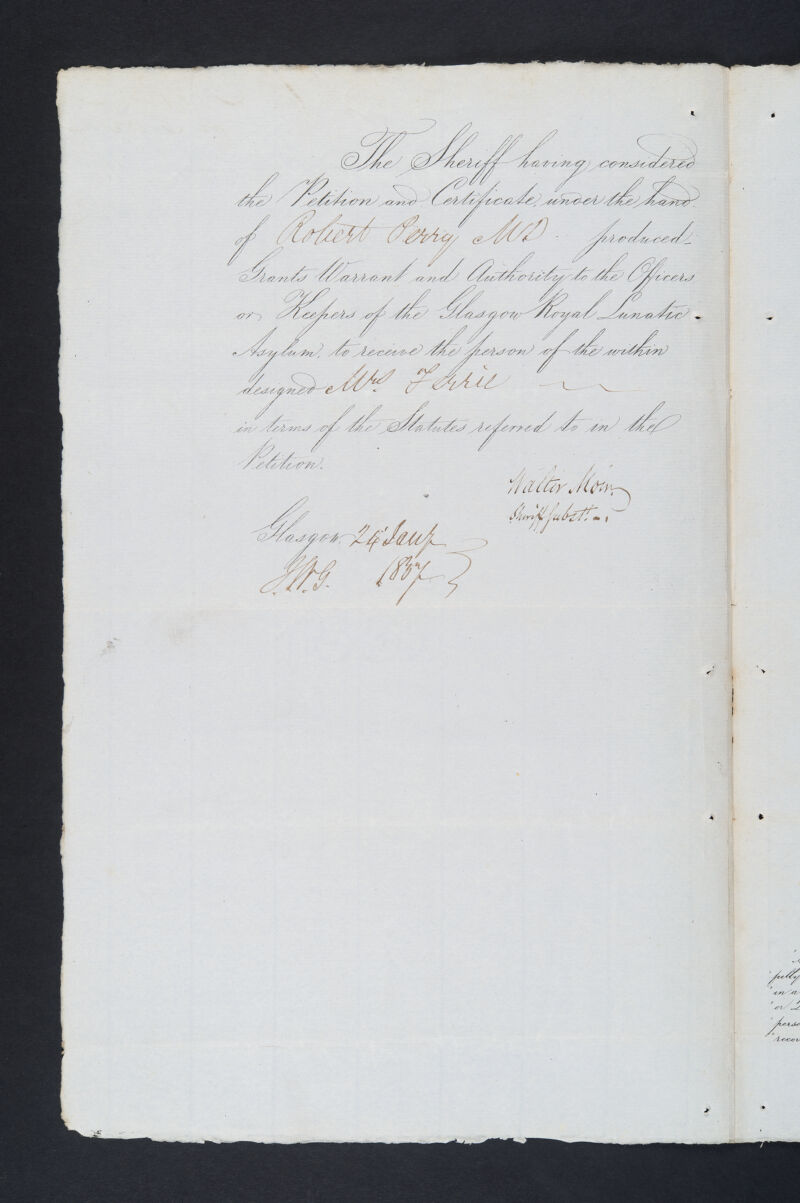 The Sheriff having considered
the Petition and Certificate under the hand
of Robert Perry MD produced
Grants Warrant and Authority to the Officers
or Keepers of the Glasgow Royal Lunatic
Asylum, to receive the person of the within
designed Mrs Ferrie
in terms of the Statutes referred to in the
Petition.
Walter Moir
Sheriff Subst.
Glasgow 24 Jany
1837
in a
or